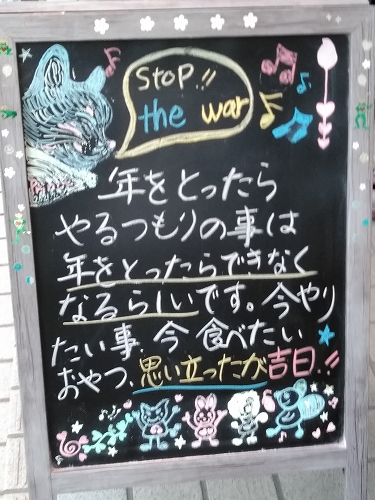 Stop!!
the war
年をとったら
やるつもりの事は
年をとったらできなく
なるらしいです。今やり
たい事、今 食べたい
おやつ、思い立ったが吉日!!